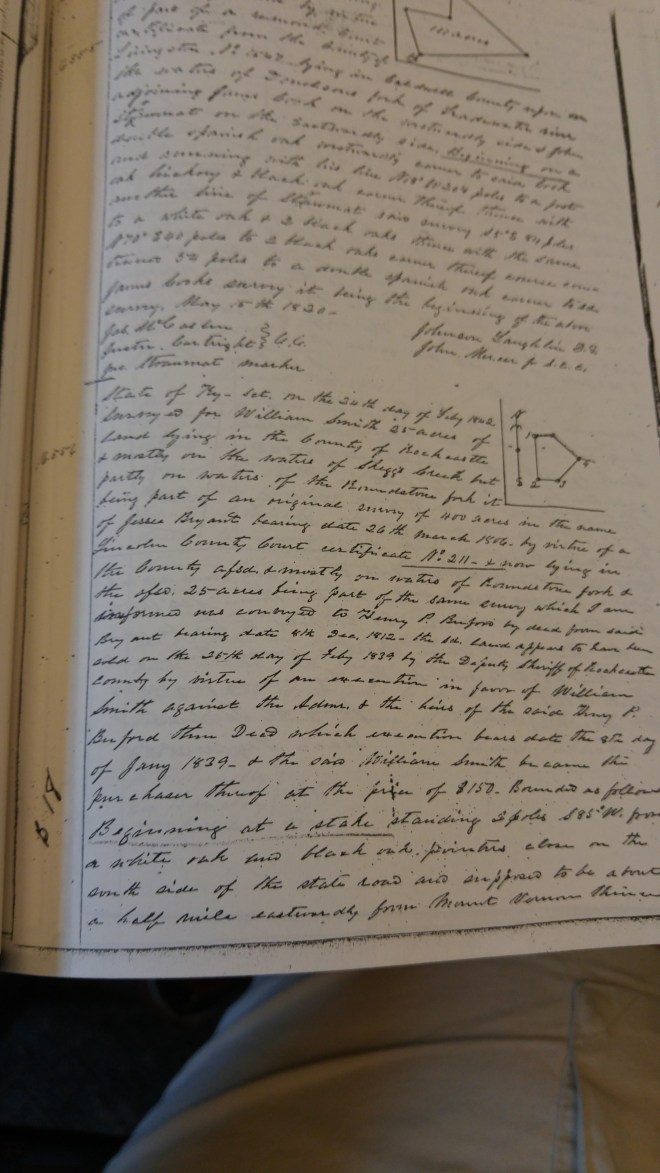 of part of a
certificate from the County of
Livingston No. lying in Caldwell County upon
the waters of Donaldsons fork of Tradewater river
adjoining James Cook on the westwardly side & John
Strawmat on the Eastwardly side, Beginning on a
double spanish oak westwardly corner to said Cook
and running with his line poles to a post
oak hickory & black oak corner thereof thence with
another line of Strawmat said survey S 84 poles
to a white oak & 2 black oaks thence with the same
N70° E 40 poles to 2 black oaks corner thereof course
thence 54 poles to a double spanish oak corner to sd.
James Cooks survey it being the beginning of the
survey. May 15th 1830-
Jas. McCaslin } C.C.
Cartright }
Strawmat marker
Johnson Laughlin D.S.
John Mercer
110 acres
State of Ky- Sct. on the 24th day of Feby 1842
Surveyed for William Smith 25 acres of
land lying in the County of Rockcastle
& mostly on the waters of Skeggs Creek but
partly on waters of the Roundstone fork it
being part of an original survey of 400 acres in the name
of Jessee Bryant bearing date 26th march 1806- by virtue of a
Lincoln County Court certificate No. 211- & now lying in
the County afsd. & mostly on waters of Roundstone fork &
the afsd. 25 acres being part of the same survey which I am
informed was conveyed to Henry P. Buford by deed from said
Bryant bearing date 8th Dec. 1812- the sd. land appears to have been
sold on the 25th day of Feby 1839 by the Deputy Sheriff of Rockcastle
County by virtue of an execution in favor of William
Smith against the Admr. & the heirs of the said Henry P.
Buford then Decd which execution bears date the 8th day
of Jany 1839- & the said William Smith became the
purchaser thereof at the price of $150- Bounded as follows
Beginning at a stake standing 2 poles S85°W. from
a white oak and black oak pointers close on the
south side of the state road and supposed to be about
a half mile eastwardly from Mount Vernon thence